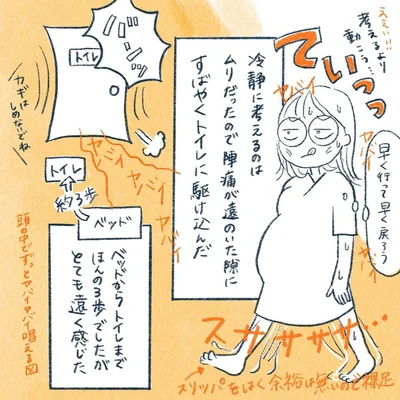 えぇい!!
考えるより
動こう…
ていっっ
冷静に考えるのは
ムリだったので陣痛が遠のいた隙に
すばやくトイレに駆け込んだ
ヤバイ
ヤバイ
ヤバイ
ヤバイ
早く行って早く戻ろう
スササササ…
スリッパをはく余裕は無いので裸足
バンッ
トイレ
カギは
しめないでね
ヤバイ
ヤバイ
ヤバイ
トイレ
約3歩
ベッド
ベッドからトイレまで
ほんの3歩でしたが
とても遠く感じた
頭の中でずっとヤバイヤバイ唱える図